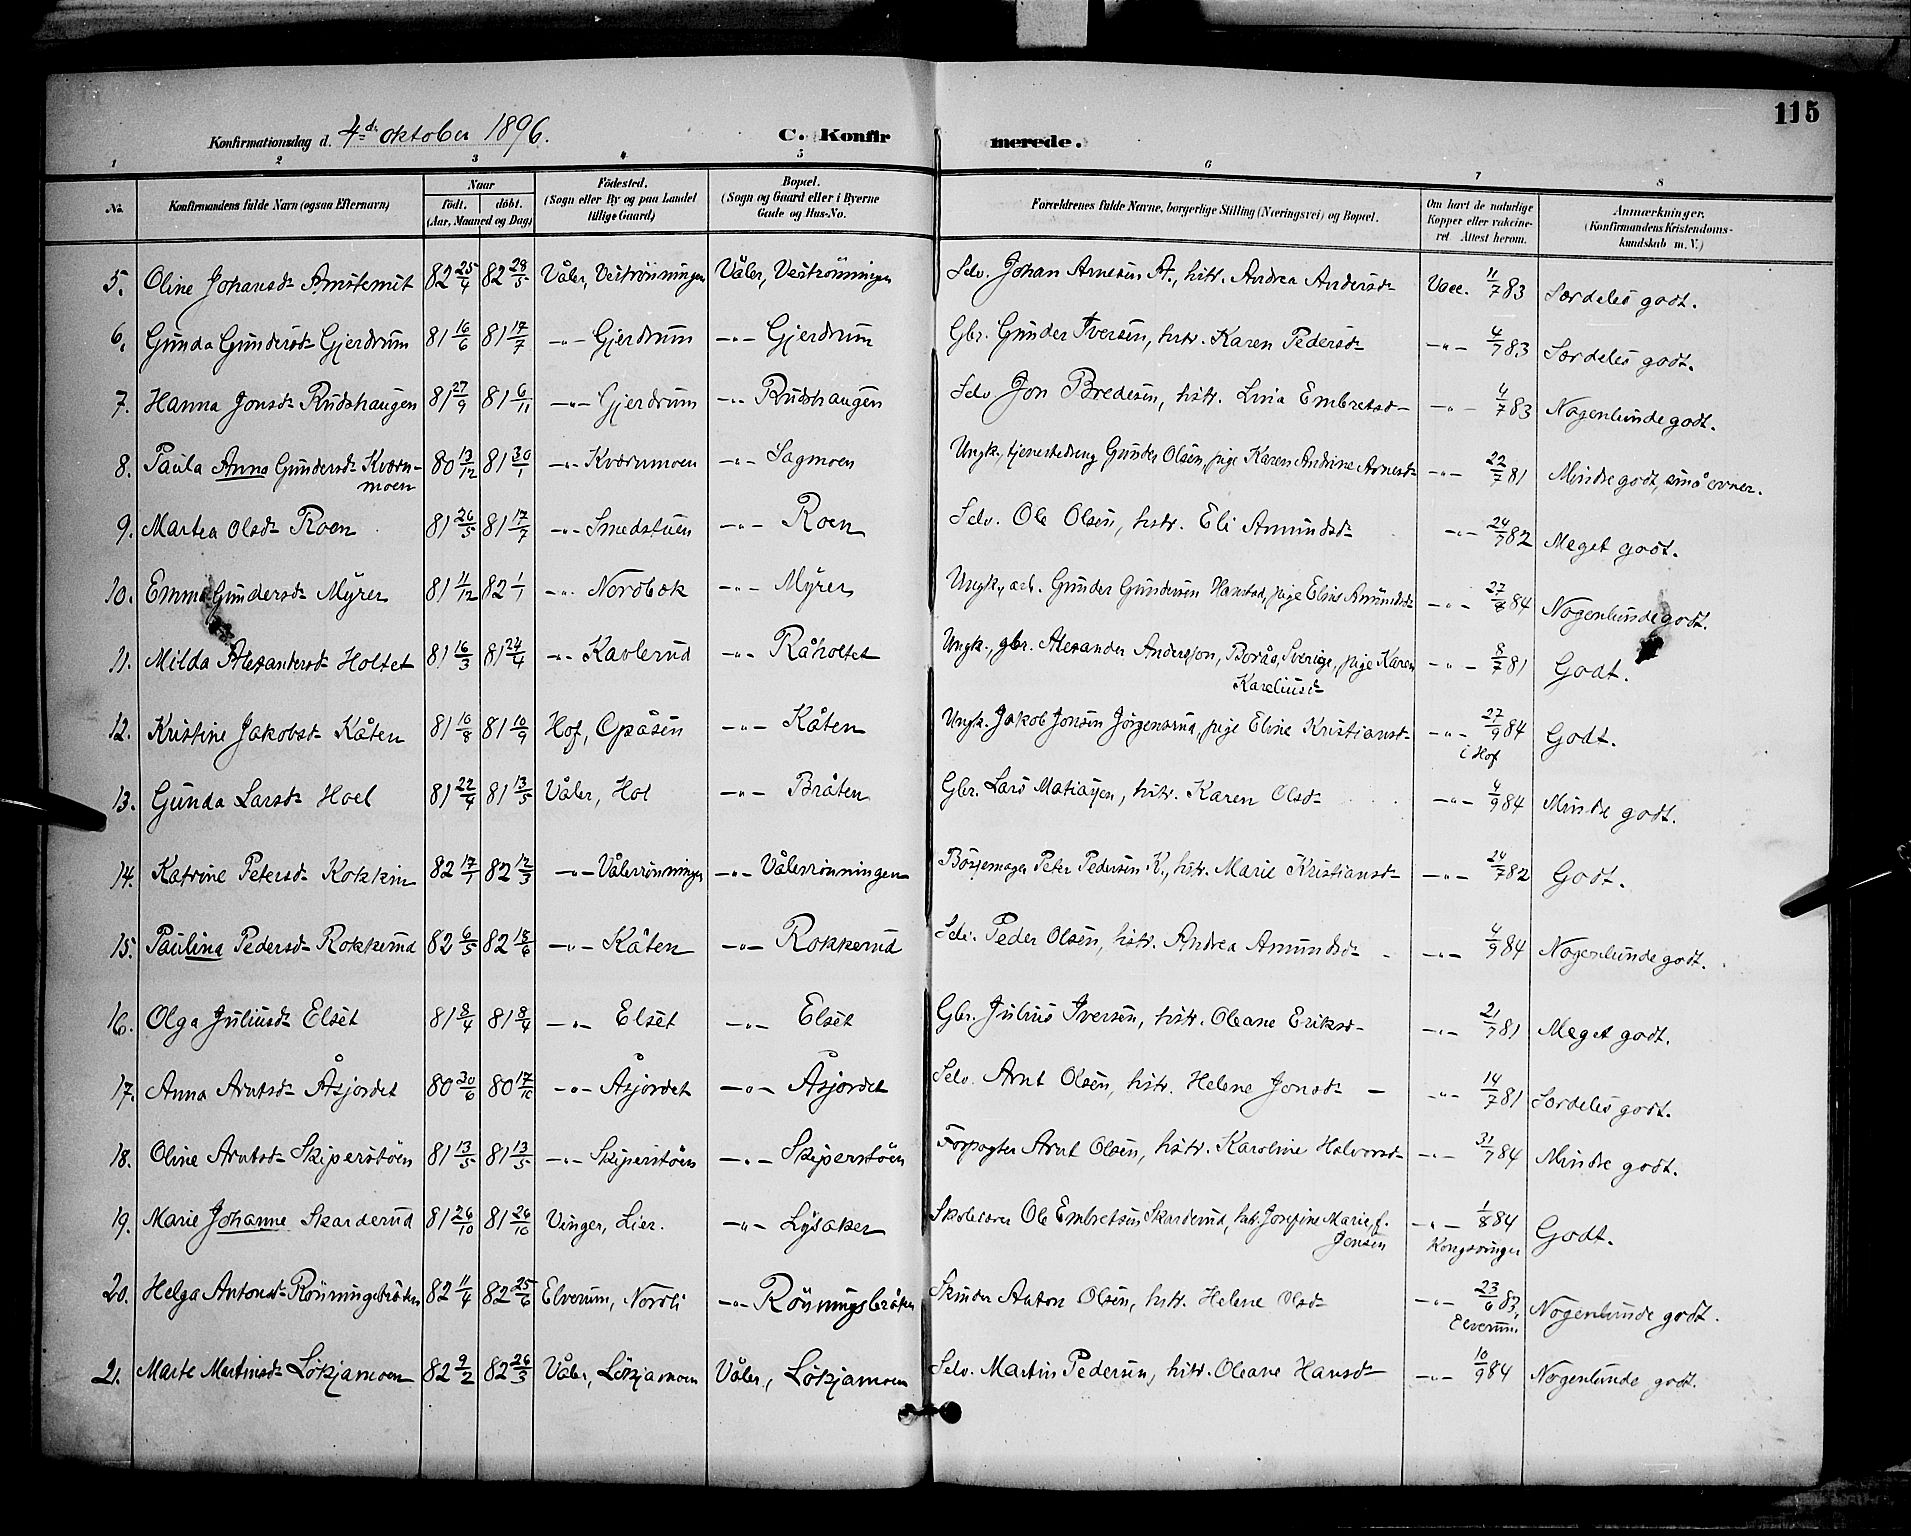 115
Konfirmationsdag d. 4de oktober 1896.
C. Konfir merede.
1 2 3 4 5 6 7 8
No. Konfirmandens fulde Navn (ogsaa Efternavn) Naar født. døbt. (Aar, Maaned og Dag) Fødested. (Sogn eller By og paa Landet tillige Gaard) Bopæl. (Sogn og Gaard eller i Byerne Gade og Hus-No. Forældrenes fulde Navne, borgerlige Stilling (Næringsvei) og Bopæl. Om havt de naturlige Kopper eller vakcineret Attest herom. Anmærkninger. (Konfirmandens Kristendomskundskab m. V.)
5. Oline Johansdr Arnstemit 82 25/4 82 28/5 Våler, Veströnningen Våler, Veströnningen Selv. Johan Arnesen A., hstr. Andrea Andersdr Vacc. 11/7 83 Særdeles godt.
6. Gunda Gundersdr Gjerdrum 81 16/6 81 17/7 -"- Gjerdrum -"- Gjerdrum Gbr. Gunder Iversen, hstr. Karen Pedersdr -"- 4/7 83 Særdeles godt.
7. Hanna Jonsdr Rudshaugen 81 27/9 81 6/11 -"- Gjerdrum -"- Rudshaugen Selv. Jon Bredesen, hstr. Lina Embretsdr -"- 4/7 83 Nogenlunde godt.
8. Paula Anna Gundersdr Kværnmoen 80 13/12 81 30/1 -"- Kværnmoen -"- Sagmoen Ungk., tjenestedreng Gunder Olsen, pige Karen Andrine Arnesdr -"- 22/7 81 Mindre godt, små evner.
9. Martea Olsdr Roen 81 26/5 81 17/7 -"- Smedstuen -"- Roen Selv. Ole Olsen, hstr. Eli Amundsdr -"- 24/7 82 Meget godt.
10. Emma Gundersdr Myrer 81 11/12 82 1/1 -"- Nordbøk -"- Myrer Ungk., arb. Gunder Gundersen Hanstad, pige Eline Amundsdr -"- 27/8 84 Nogenlunde godt.
11. Milda Alexandersdr Holtet 81 16/3 81 24/4 -"- Kavlerud -"- Råholtet Ungk., gbr. Alexander Andersson, Borås, Sverige, pige Karen Kareliusdr -"- 8/7 81 Godt.
12. Kristine Jakobsdr Kåten 81 10/8 81 10/9 Hof, Opåsen -"- Kåten Ungk. Jakob Jonsen Jörgensrud, pige Eline Kristiansdr -"- 27/9 84 i Hof Godt.
13. Gunda Larsdr Hoel 81 22/4 81 13/5 Våler, Hol -"- Bråten Gbr. Lars Matiassen, hstr. Karen Olsdr -"- 4/9 84 Mindre godt.
14. Katrine Petersdr Kokkin 82 17/1 82 12/3 -"- Vålerrönningen -"- Vålerrönningen Bössemager Peter Pedersen K., hstr. Marie Kristiansdr -"- 24/7 82 Godt.
15. Paulina Pedersdr Rokkerud 82 6/5 82 18/6 -"- Kåten -"- Rokkerud Selv. Peder Olsen, hstr. Andrea Amundsdr -"- 4/9 84 Nogenlunde godt.
16. Olga Juliusdr Elset 81 8/4 81 8/4 -"- Elset -"- Elset Gbr. Julius Iversen, hstr. Oleane Eriksdr -"- 21/7 81 Meget godt.
17. Anna Arntsdr Åsjordet 80 30/6 80 17/10 -"- Åsjordet -"- Åsjordet Selv. Arnt Olsen, hstr. Helene Jonsdr -"- 14/7 81 Særdeles godt.
18. Oline Arntsdr Skiperstöen 81 13/5 81 13/5 -"- Skiperstöen -"- Skiperstöen Forpagter Arnt Olsen, hstr. Karoline Halvorsdr -"- 31/7 84 Mindre godt.
19. Marie Johanne Skarderud 81 26/10 81 26/10 Vinger, Lier. -"- Lysaker Skolelærer Ole Embretsen Skarderud, hstr. Josefine Marie, f. Jensen -"- 1/8 84 Kongsvinger Godt.
20. Helga Antonsdr Rönningsbråten 82 11/4 82 25/6 Elverum, Nordli -"- Rönningsbråten Skinder Anton Olsen, hstr. Helene Olsdr -"- 23/6 83, Elverum Nogenlunde godt.
21. Marte Martinsdr Lökjamoen 82 9/2 82 26/3 Våler, Lökjamoen Våler, Lökjamoen Selv. Martin Pedersen, hstr. Oleane Hansdr -"- 10/9 84 Nogenlunde godt.